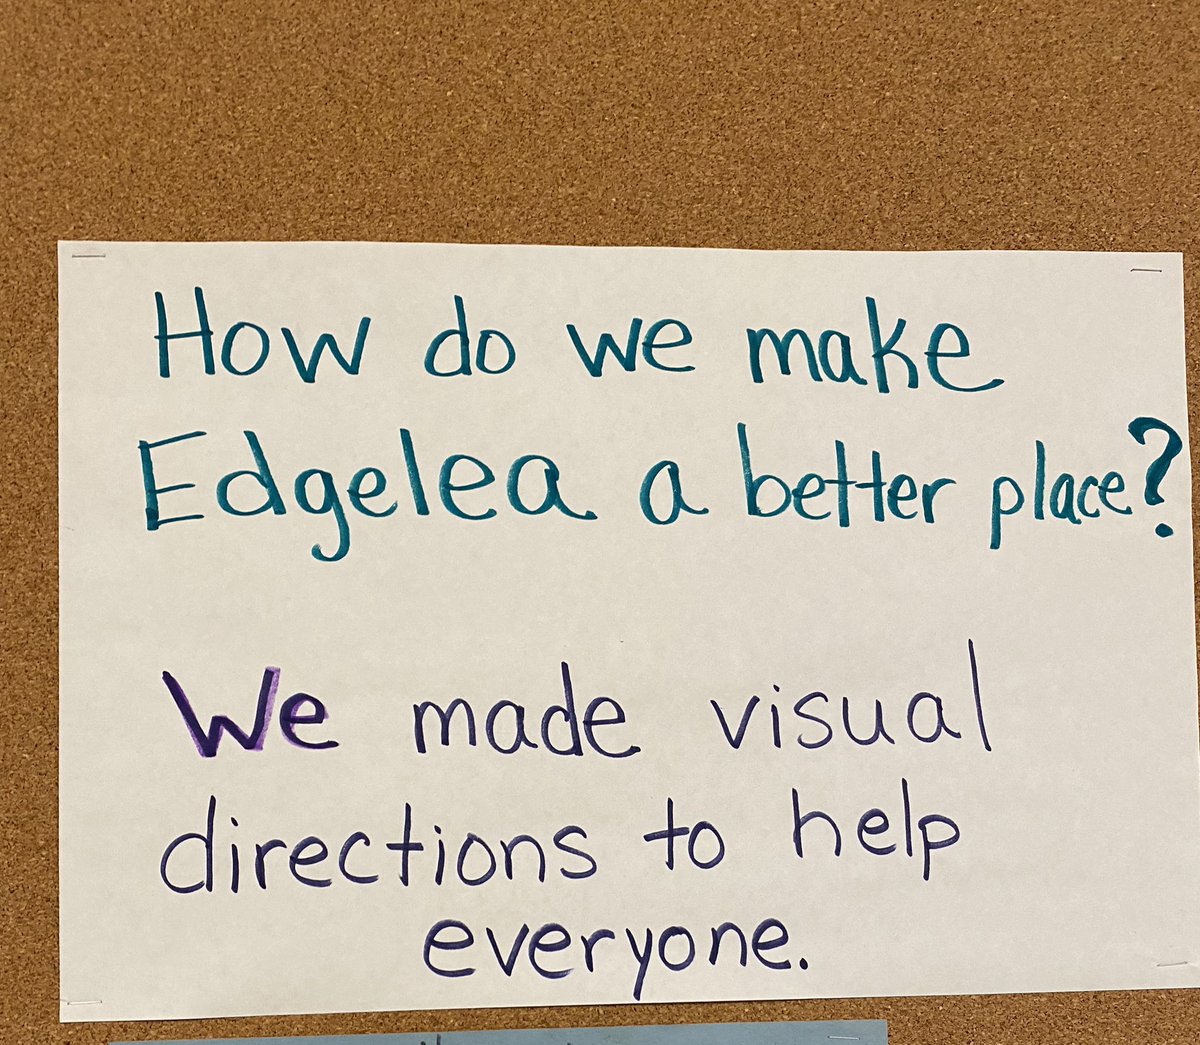 How do we make
Edgelea a better place?
We made visual
directions to help
everyone.